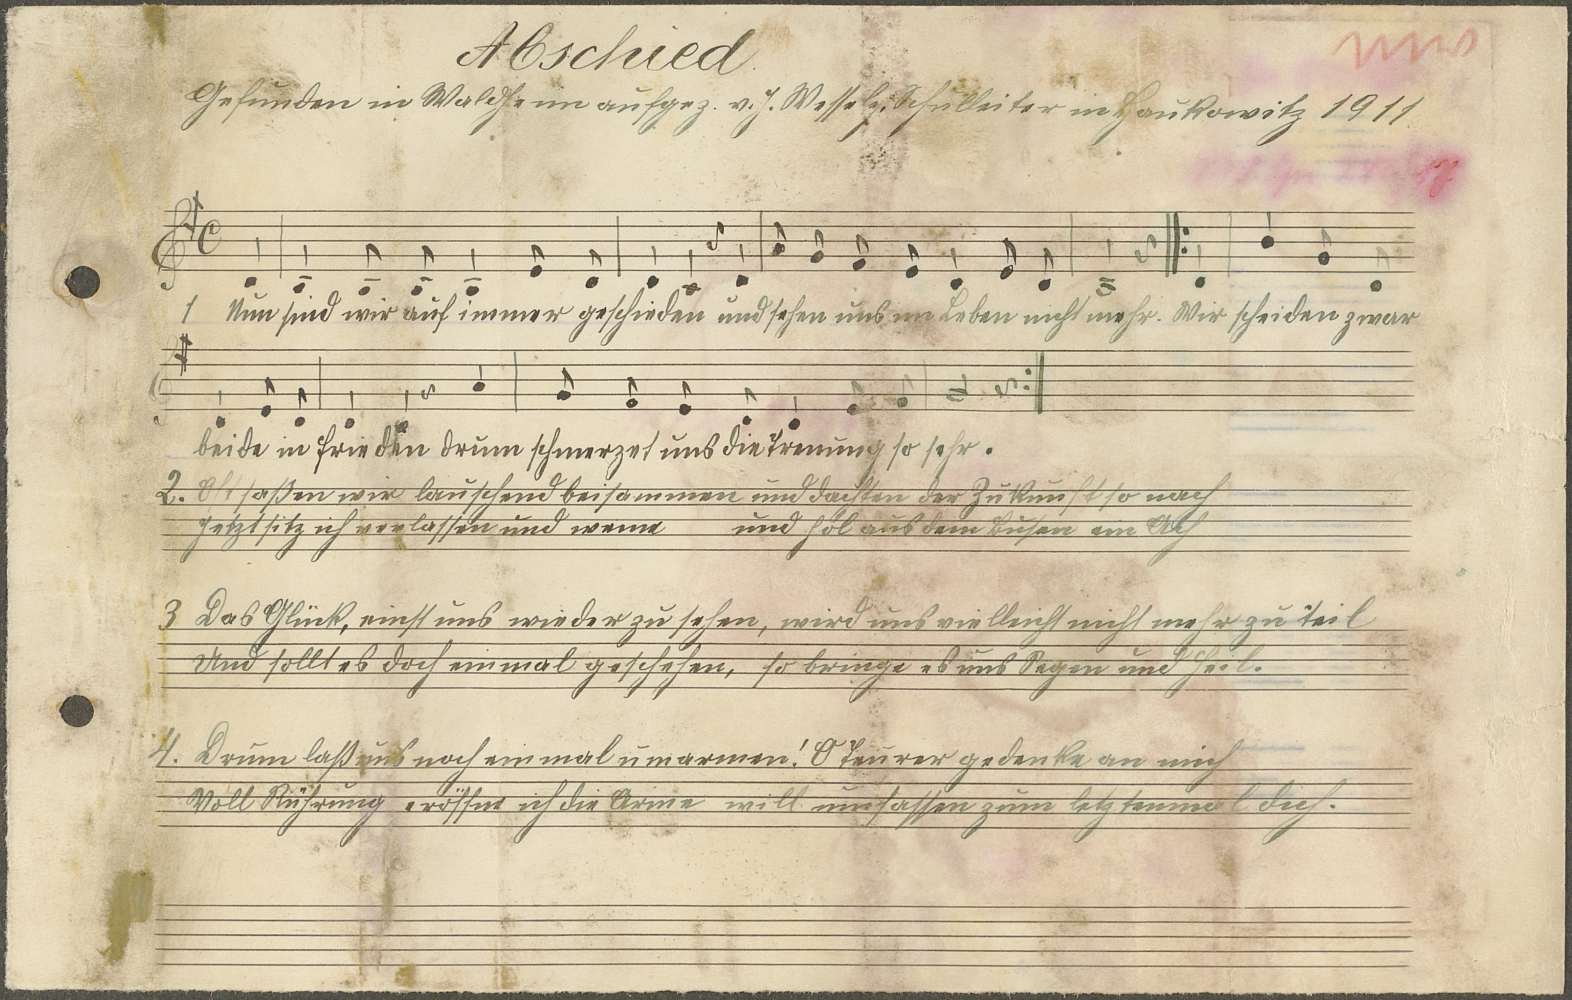 Abschied.
Gefunden in Waldheim aufgez. v. J. Wessely, Schulleiter in Haukowitz 1911
1 Nun sind wir auf immer geschieden und sehen uns im Leben nicht mehr. Wir scheiden zwar
beide in Frieden drum schmerzet uns die Trenung so sehr.
2. Oft saßen wir lauschend beisammen und dachten der Zukunft so nach
Jetzt sitz ich verlassen und weine und hol aus dem Busen ein Ach
3 Das Glück, einst uns wieder zu sehen, wird uns vielleicht nicht mehr zu teil
Und sollt es doch einmal geschehen, so bringe es uns Segen und Heil.
4. Drum laß uns noch einmal umarmen! O Teurer gedenke an mich
Voll Rührung eröffne ich die Arme will umfassen zum letztenmal dich.